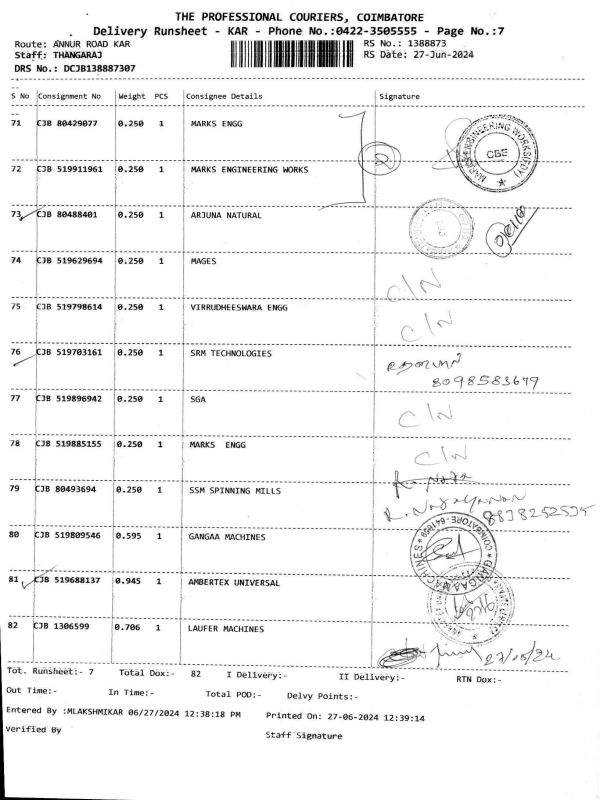 THE PROFESSIONAL COURIERS, COIMBATORE
Delivery Runsheet - KAR - Phone No.:0422-3505555 - Page No.:7
Route: ANNUR ROAD KAR RS No.: 1388873
Staff: THANGARAJ RS Date: 27-Jun-2024
DRS No.: DCJB138887307
S No Consignment No Weight PCS Consignee Details Signature
71 CJB 80429077 0.250 1 MARKS ENGG
2
CBE
72 CJB 519911961 0.250 1 MARKS ENGINEERING WORKS
73 CJB 80488401 0.250 1 ARJUNA NATURAL
74 CJB 519629694 0.250 1 MAGES C/N
75 CJB 519798614 0.250 1 VIRRUDHEESWARA ENGG C/N
76 CJB 519703161 0.250 1 SRM TECHNOLOGIES
8098583679
77 CJB 519896942 0.250 1 SGA C/N
78 CJB 519885155 0.250 1 MARKS ENGG C/N
79 CJB 80493694 0.250 1 SSM SPINNING MILLS
8838252535
80 CJB 519809546 0.595 1 GANGAA MACHINES
GANGAA MACHINES COIMBATORE
81 CJB 519688137 0.945 1 AMBERTEX UNIVERSAL
82 CJB 1306599 0.706 1 LAUFER MACHINES
Tot. Runsheet:- 7 Total Dox:- 82 I Delivery:- II Delivery:- RTN Dox:-
Out Time:- In Time:- Total POD:- Delvy Points:-
Entered By :MLAKSHMIKAR 06/27/2024 12:38:18 PM Printed On: 27-06-2024 12:39:14
Verified By Staff Signature